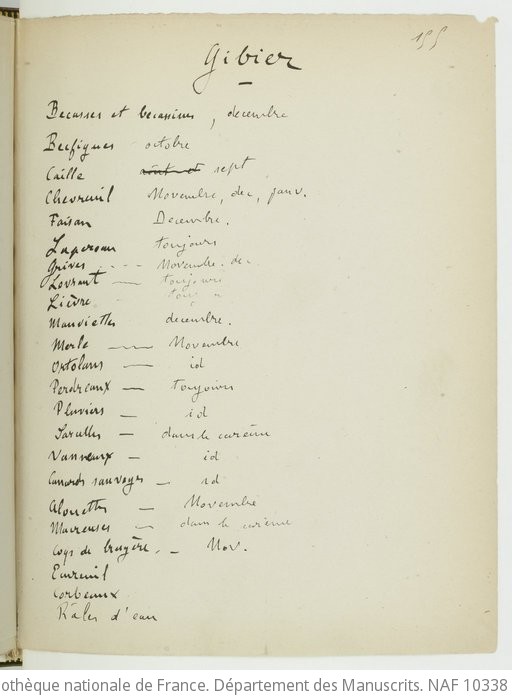 155
Gibier
Becasses et becassines, decembre
Becfigues octobre
Caille août et sept
Chevreuil Novembre, dec, janv.
Faisan Decembre.
Lapereau toujours
Grives - - - Novembre. dec
Levraut — toujours
Lièvre touj
Mauviettes decembre.
Merle —— Novembre
Ortolans — id
Perdreaux — toujours
Pluviers — id
Sarcelles — dans le carême
Vanneaux — id
Canards sauvages — id
Alouettes — Novembre
Macreuses — dans le carême
Coqs de bruyère. — Nov.
Ecureuil
Corbeaux
Râles d'eau
othèque nationale de France. Département des Manuscrits. NAF 10338